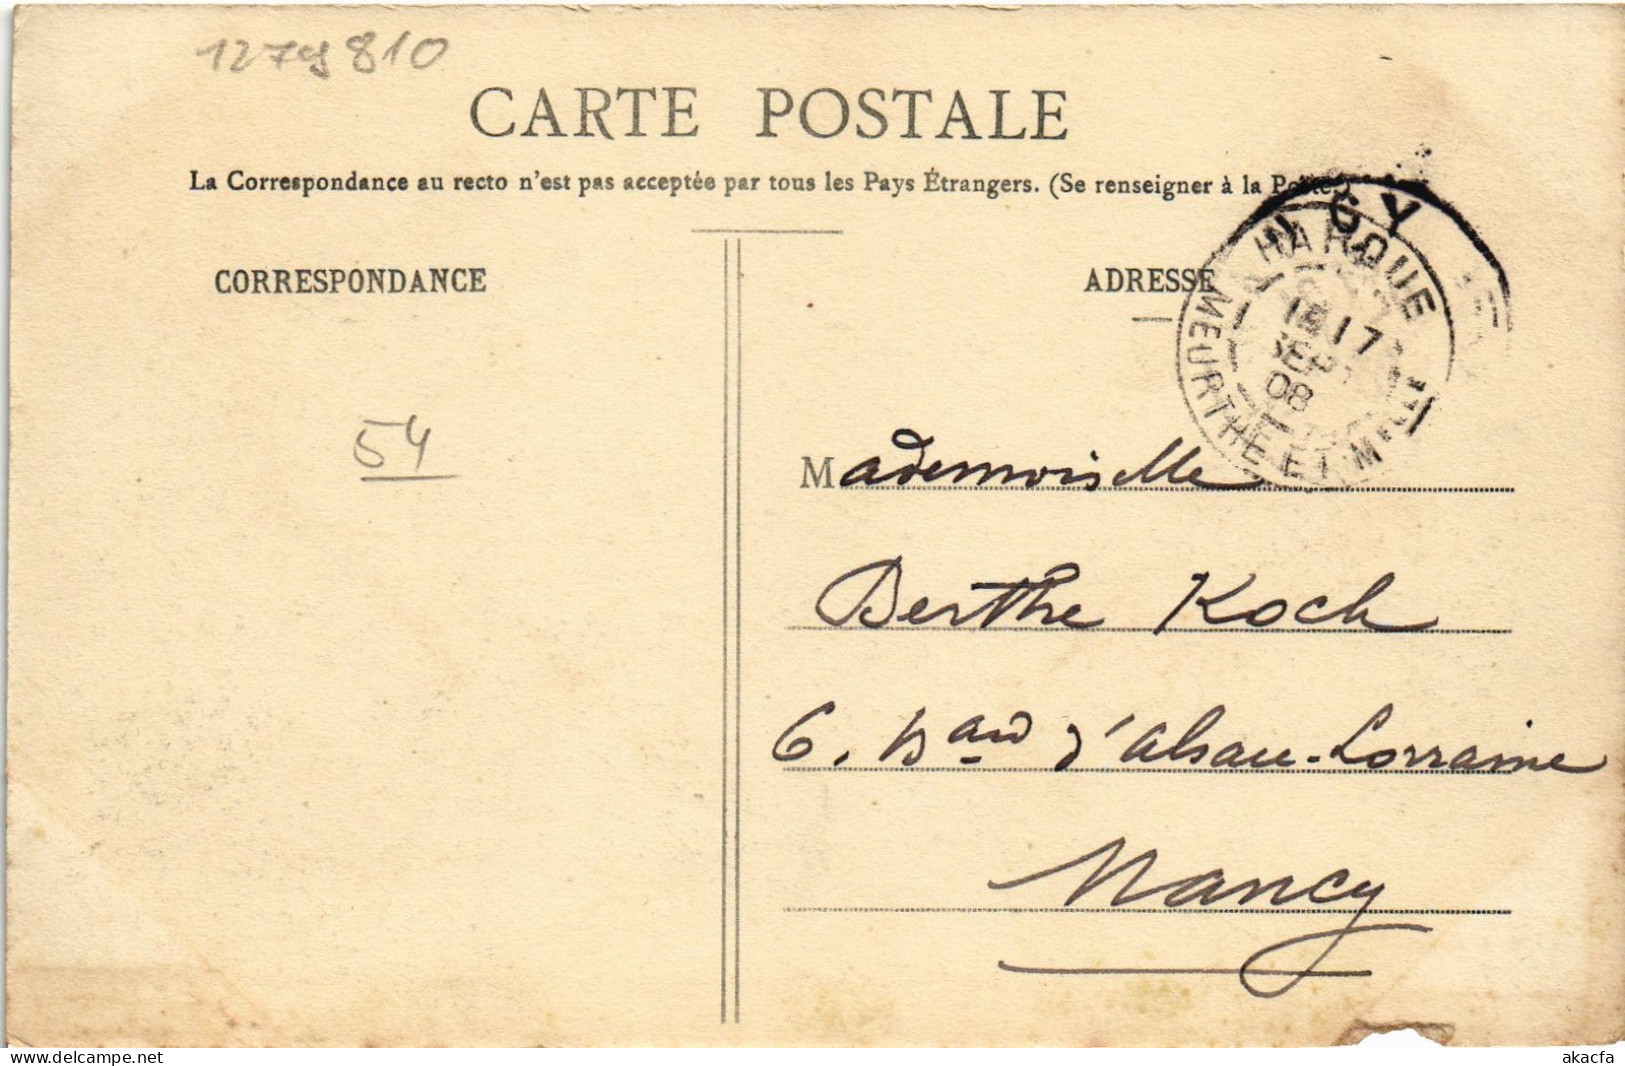 1279810
CARTE POSTALE
La Correspondance au recto n'est pas acceptée par tous les Pays Étrangers. (Se renseigner à la Poste.)
CORRESPONDANCE
ADRESSE
HAROUE
MEURTHE ET M
17
SEPT
08
54
Mademoiselle
Berthe Koch
6. Bard d'Alsace-Lorraine
Nancy
akacfa-delcampe.net
akacfa